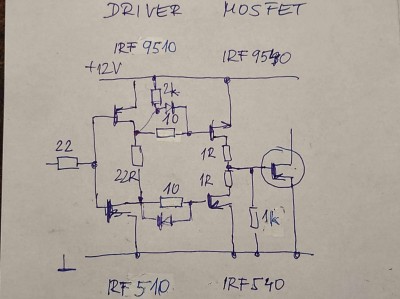 DRIVER MOSFET
IRF9510 IRF9540
+12V
2k
10
22
22R
1R
1R
10
1k
IRF510 IRF540